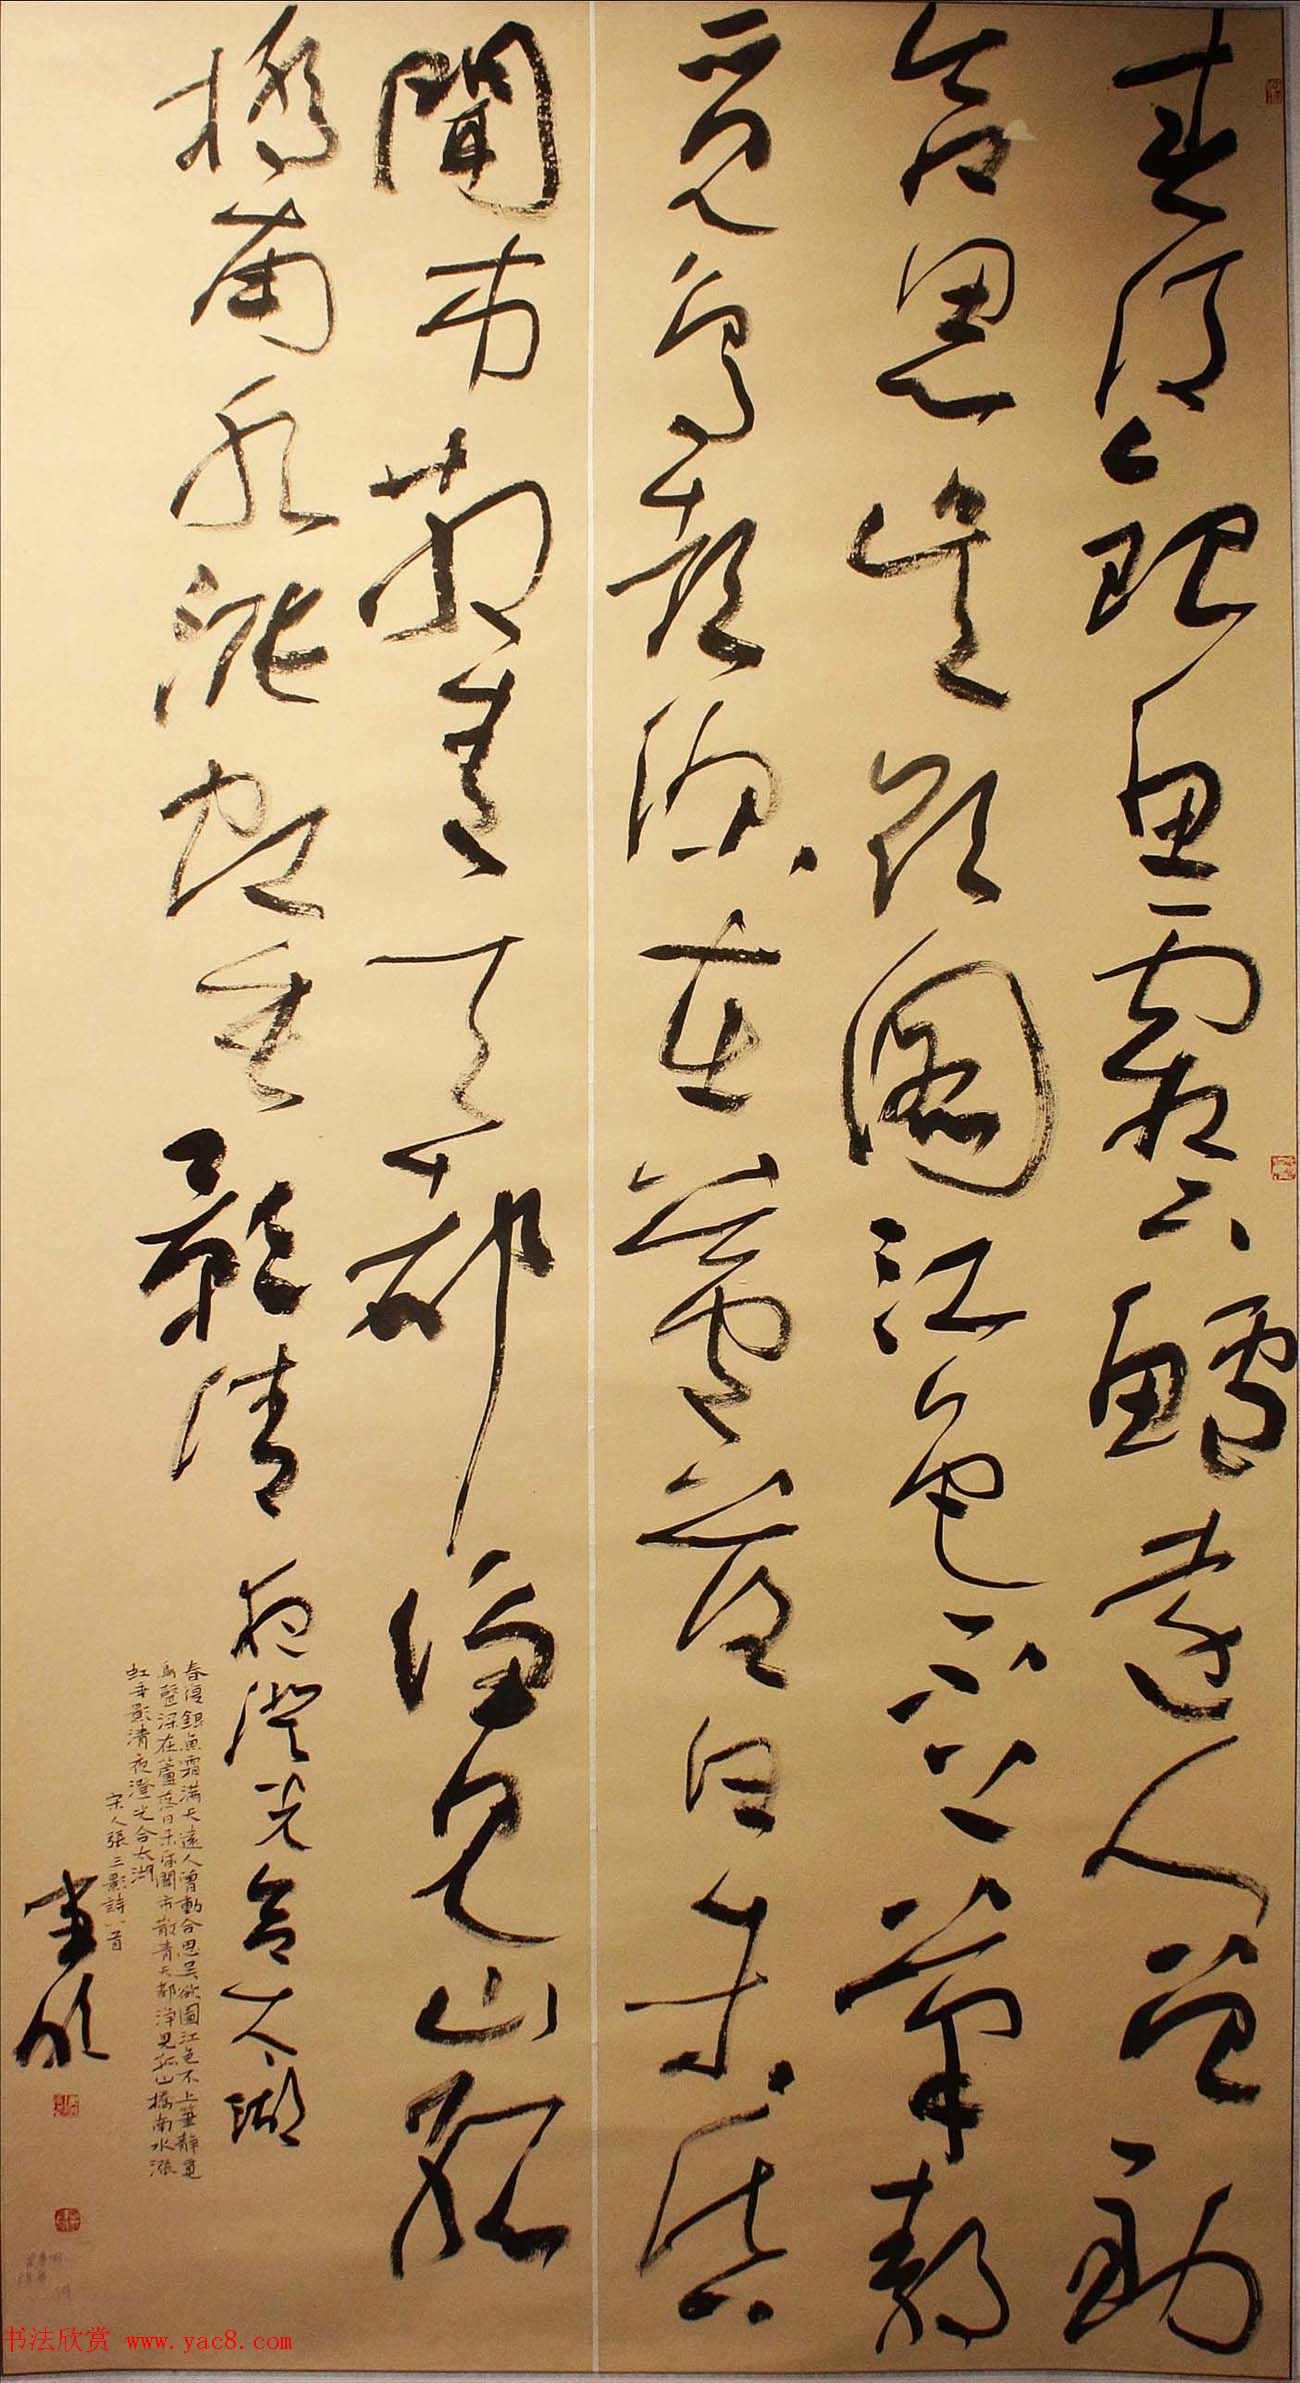 春後銀魚霜下鱸遠人曾動
合思吴欲圖江色不上筆静
覓鳥聲深在蘆落日未昏
聞市散青天都淨見山孤
橋南水漲虹垂影清夜澄光合太湖
春後銀魚霜滿天遠人曾動合思吴欲圖江色不上筆靜覓
鳥聲深在蘆落日未昏聞市散青天都淨見孤山橋南水漲
虹垂影清夜澄光合太湖
宋人張三影詩一首
书法欣赏 www.yac8.com